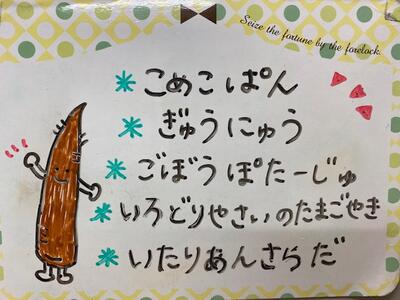 Seize the fortune by the forelock.
* こめこぱん
* ぎゅうにゅう
* ごぼうぽたーじゅ
* いろどりやさいのたまごやき
* いたりあんさらだ